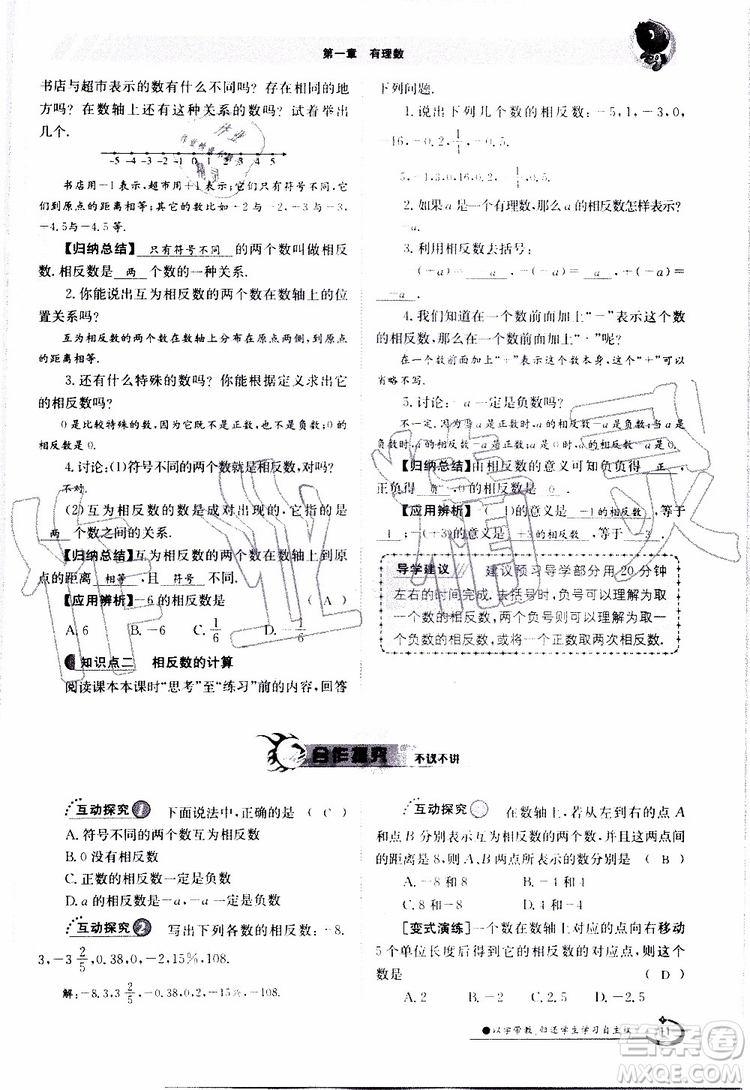 第一章 有理数
书店与超市表示的数有什么不同吗? 存在相同的地
方吗? 在数轴上还有这种关系的数吗? 试着举出
几个.
-5 -4 -3 -2 -1 0 1 2 3 4 5
书店用-1表示,超市用+1表示;它们只有符号不同,到
原点的距离相等;其它的数比如-2与2,-3与3,
-4.5与4.5等.
【归纳总结】 只有符号不同 的两个数叫做相反
数. 相反数是 两 个数的一种关系.
2. 你能说出互为相反数的两个数在数轴上的位
置关系吗?
互为相反数的两个数在数轴上分布在原点两侧,到原点
的距离相等.
3. 还有什么特殊的数吗? 你能根据定义求出它
的相反数吗?
0是比较特殊的数,因为它既不是正数,也不是负数;0的
相反数是0.
4. 讨论:(1)符号不同的两个数就是相反数,对吗?
不对.
(2)互为相反数的数是成对出现的,它指的是
两 个数之间的关系.
【归纳总结】互为相反数的两个数在数轴上到原
点的距离 相等 ,且 符号 不同.
【应用辨析】-6的相反数是 ( A )
A. 6 B. -6 C. 1/6 D. -1/6
知识点二 相反数的计算
阅读课本本课时“思考”至“练习”前的内容,回答
下列问题.
1. 说出下列几个数的相反数:-5,1,-3,0,
5,-1,3,0,16,0.2,
2. 如果a是一个有理数,那么a的相反数怎样表示?
-a.
3. 利用相反数去括号:
-(+a)= -a ,-(-a)= a .
4. 我们知道在一个数前面加上“-”表示这个数
的相反数,那么在一个数前面加上“+”呢?
在一个数前面加上“+”表示这个数本身,这个“+”可以
省略不写.
5. 讨论:-a一定是负数吗?
【归纳总结】由相反数的意义可知负负得 正 ,
【应用辨析】-(-1)的意义是 -1的相反数 ,等于
1 ;-(+3)的意义是 +3的相反数 ,等于 -3 .
导学建议 建议预习导学部分用20分钟
左右的时间完成. 去括号时,负号可以理解为取
一个数的相反数,两个负号则可以理解为取一
个负数的相反数,或将一个正数取两次相反数.
合作探究 不议不讲
互动探究1 下面说法中,正确的是 ( C )
A. 符号不同的两个数互为相反数
B. 0没有相反数
C. 正数的相反数一定是负数
D. a的相反数是-a,-a一定是负数
互动探究2 写出下列各数的相反数:-8.
3,-3 2/5,0.38,0,-2,15%,108.
解:-8.3,3 2/5
互动探究 在数轴上,若从左到右的点A
和点B分别表示互为相反数的两个数,并且这两点间
的距离是8,则A、B两点所表示的数分别是 ( B )
A. 4和-4 B. -4和4
C. 8和8 D. -4和8
[变式演练]一个数在数轴上对应的点向右移动
5个单位长度后得到它的相反数的对应点,则这个
数是 ( D )
A. 2 B. -2 C. 2.5 D. -2.5
以学带教,归还学生学习自主权 11